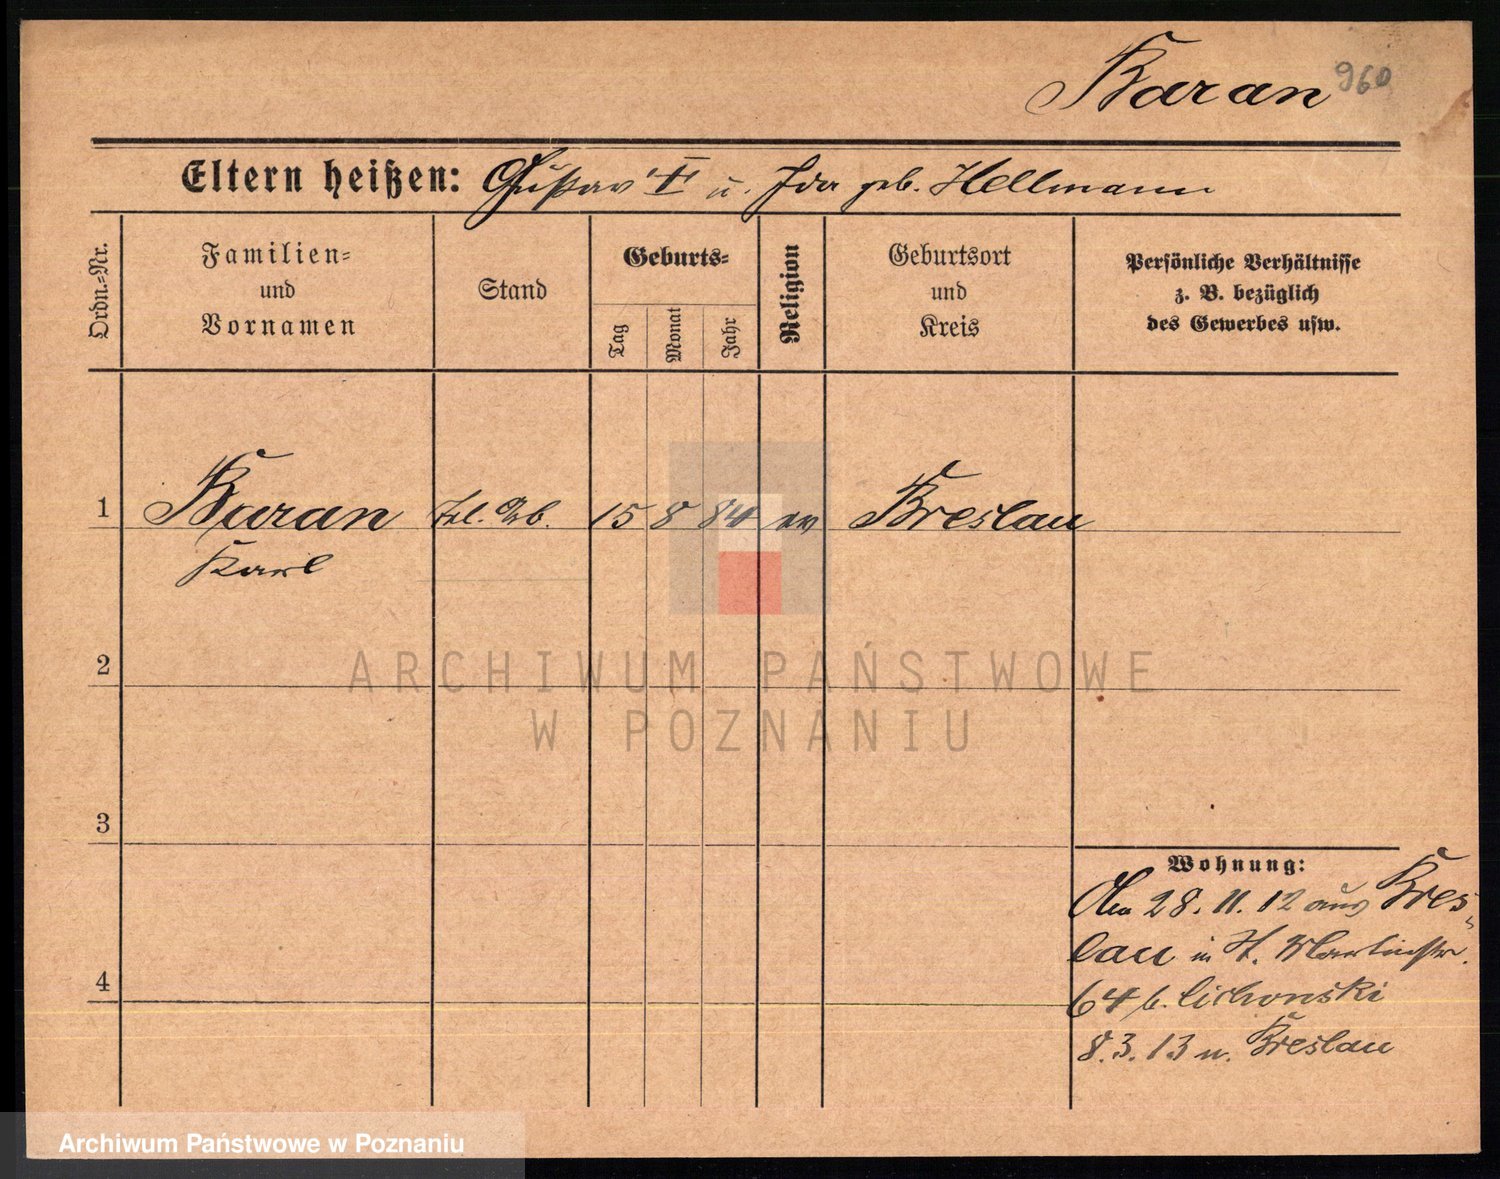 Baran 960
Eltern heißen: Gustav † u. Ida geb. Hellmann
Ordn.-Nr.
Familien-
und
Vornamen
Stand
Geburts-
Tag
Monat
Jahr
Religion
Geburtsort
und
Kreis
Persönliche Verhältnisse
z. B. bezüglich
des Gewerbes usw.
1 Baran 15 8 84 ev Breslau
Karl
2
ARCHIWUM PAŃSTWOWE
W POZNANIU
3
Wohnung:
28. 11. 12 aus Bres-
lau in St. Martinstr.
64 b. Cichonski
4
8. 3. 13 n. Breslau
Archiwum Państwowe w Poznaniu